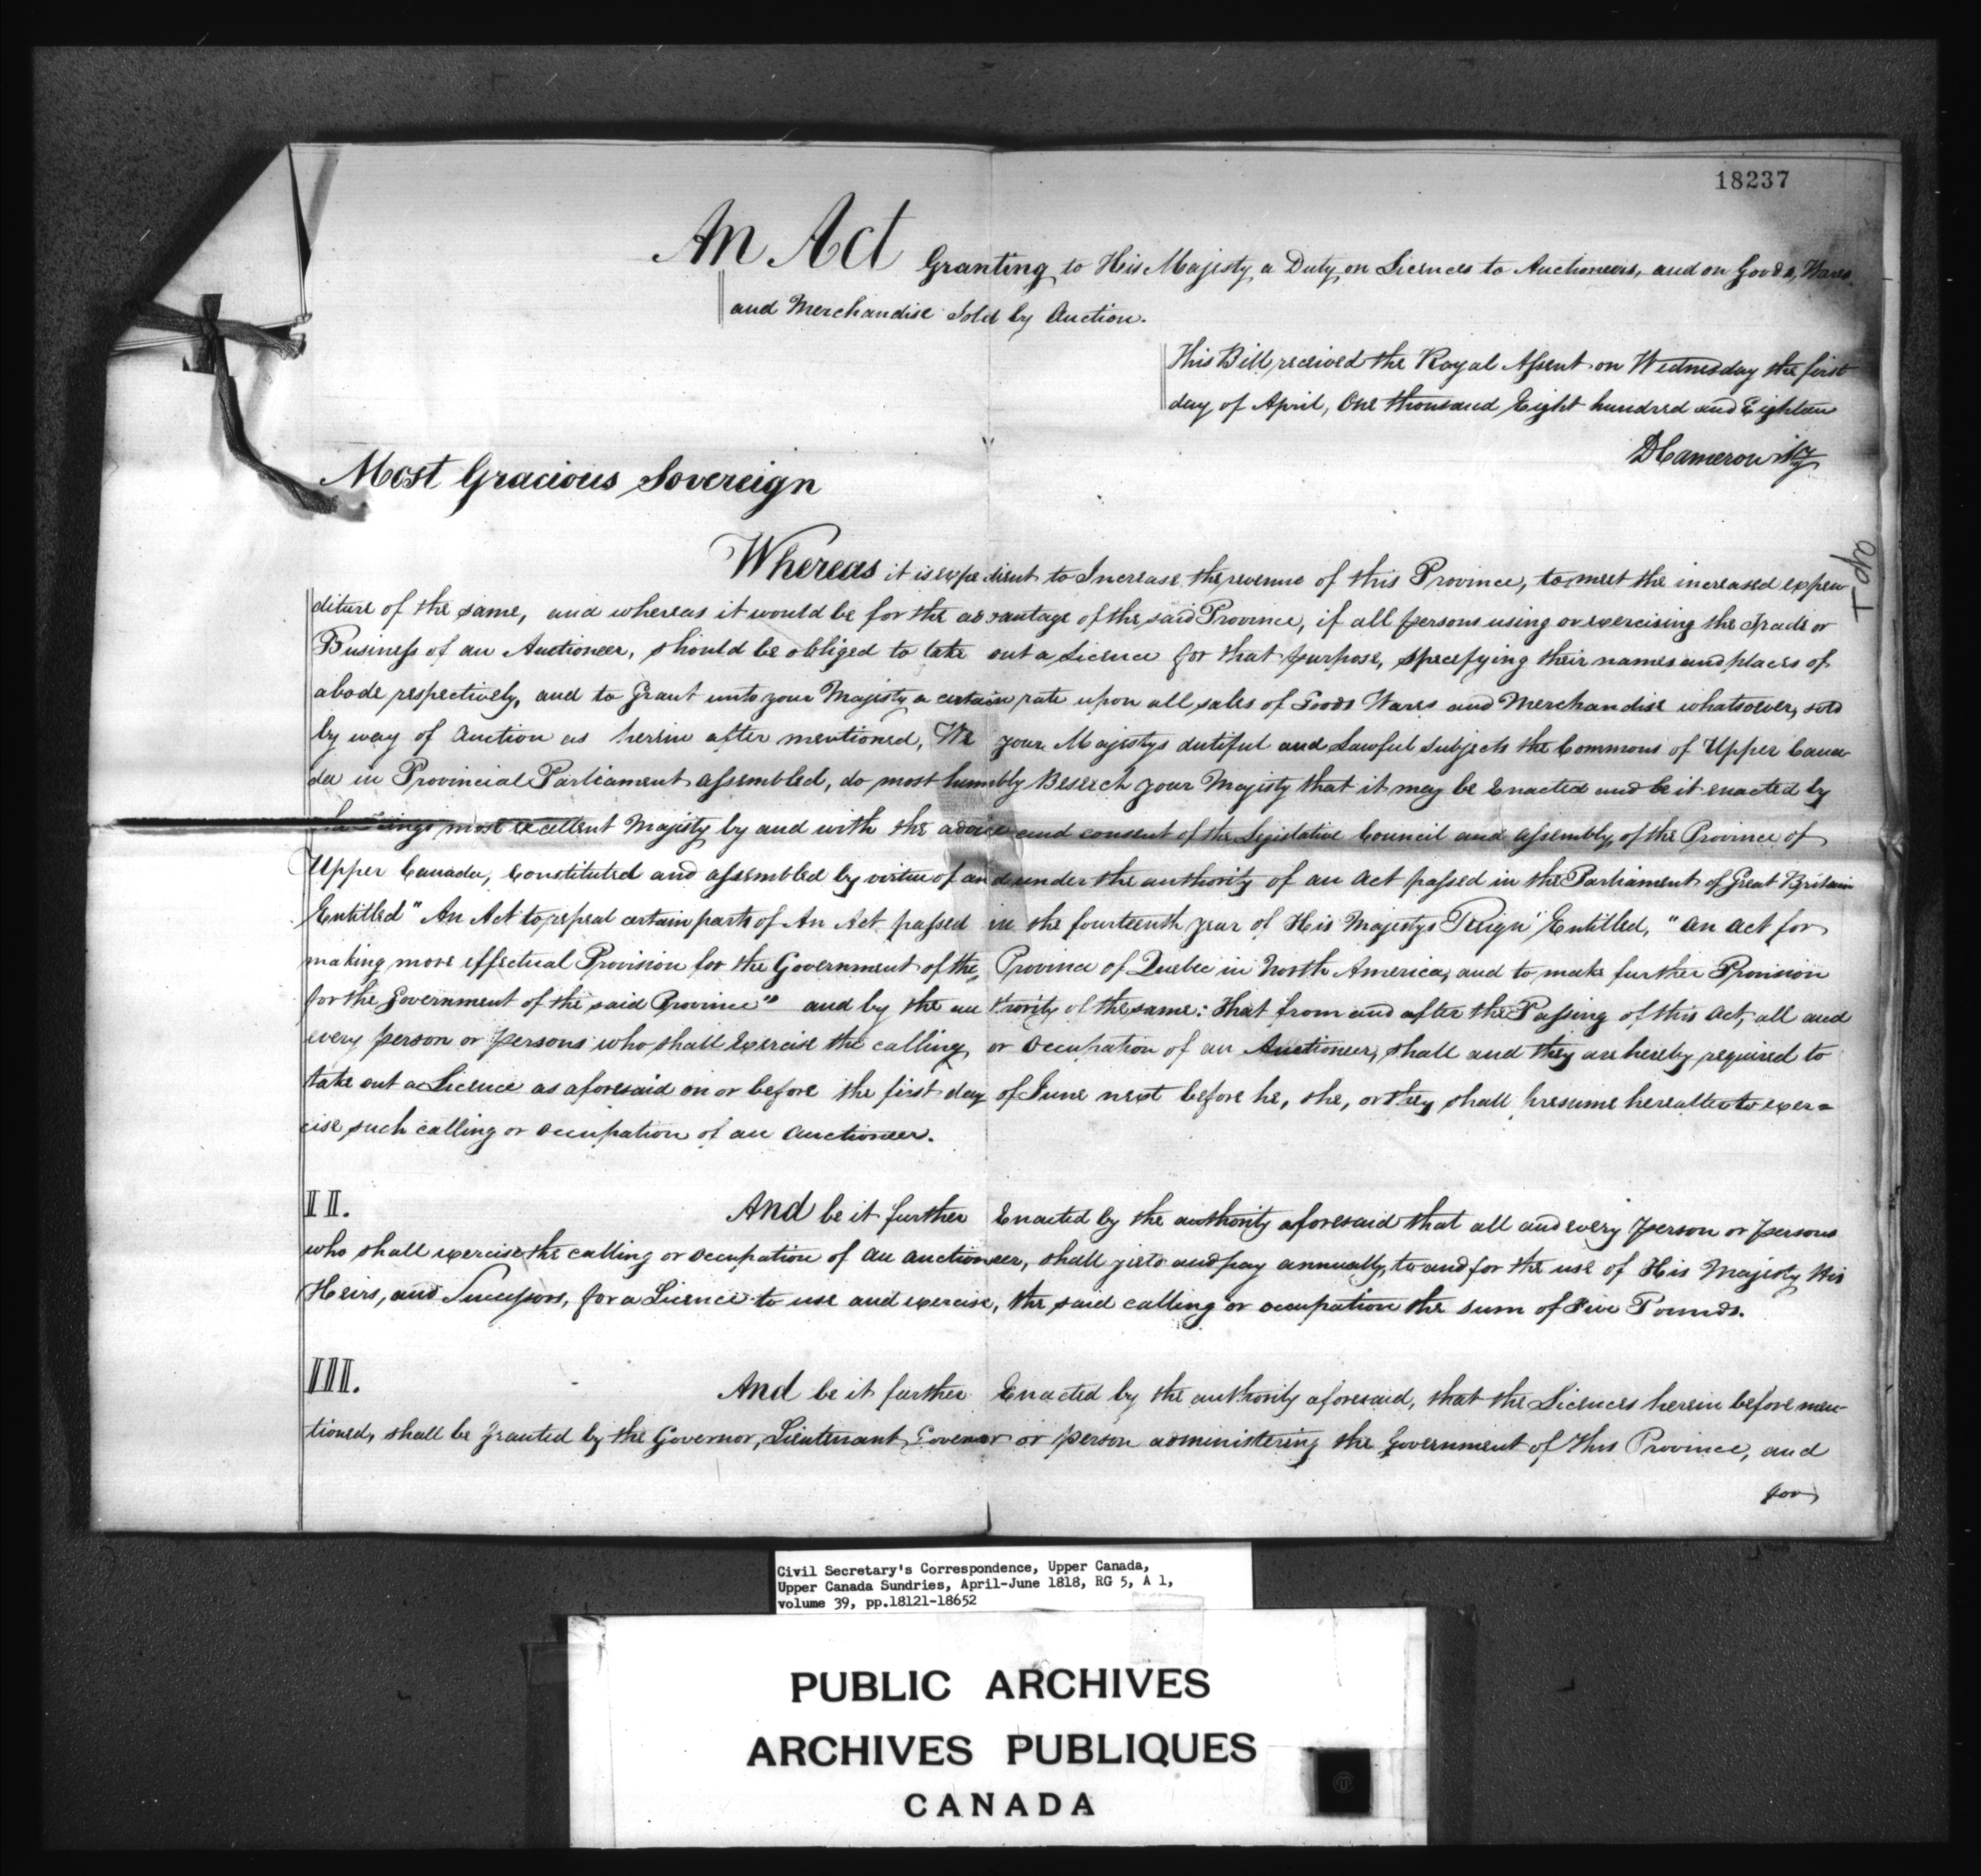 18237
An Act Granting to His Majesty a Duty on Licences to Auctioneers, and on Goods, Wares
and Merchandise Sold by Auction.
This Bill received the Royal Assent on Wednesday the first
day of April, One thousand Eight hundred and Eighteen
DCameron Secy
Most Gracious Sovereign
Whereas it is expedient to Increase the revenue of this Province, to meet the increased expen
diture of the same, and whereas it would be for the advantage of the said Province, if all persons using or exercising the Trade or
Business of an Auctioneer, should be obliged to take out a Licence for that purpose, specifying their names and places of
abode respectively, and to Grant unto your Majesty a certain rate upon all sales of Goods Wares and Merchandise whatsoever, sold
by way of Auction as herein after mentioned, We your Majestys dutiful and Lawful Subjects the Commons of Upper Cana-
da in Provincial Parliament assembled, do most humbly Beseech your Majesty that it may be Enacted and be it enacted by
the Kings most excellent Majesty by and with the advice and consent of the Legislative Council and assembly, of the Province of
Upper Canada, Constituted and assembled by virtue of and under the authority of an Act passed in the Parliament of Great Britain
Entitled "An Act to repeal certain parts of An Act passed in the fourteenth year of His Majestys Reign" Entitled, "An Act for
making more effectual Provision for the Government of the Province of Quebec in North America, and to make further Provision
for the Government of the said Province" and by the authority of the same: that from and after the Passing of this Act, all and
every person or persons who shall Exercise the calling or Occupation of an Auctioneer, shall and they are hereby required to
take out a Licence as aforesaid on or before the first day of June next before he, she, or they shall presume hereafter to exer=
cise such calling or occupation of an Auctioneer.
II. And be it further Enacted by the authority aforesaid that all and every person or persons
who shall exercise the calling or occupation of an auctioneer, shall yield and pay annually, to and for the use of His Majesty His
Heirs, and Successors, for a Licence to use and exercise, the said calling or occupation the sum of Five Pounds.
III. And be it further Enacted by the authority aforesaid, that the Licences herein before men-
tioned, shall be granted by the Governor, Lieutenant Governor or person administering the Government of this Province, and
for
Civil Secretary's Correspondence, Upper Canada,
Upper Canada Sundries, April-June 1818, RG 5, A 1,
volume 39, pp.18121-18652
PUBLIC ARCHIVES
ARCHIVES PUBLIQUES
CANADA